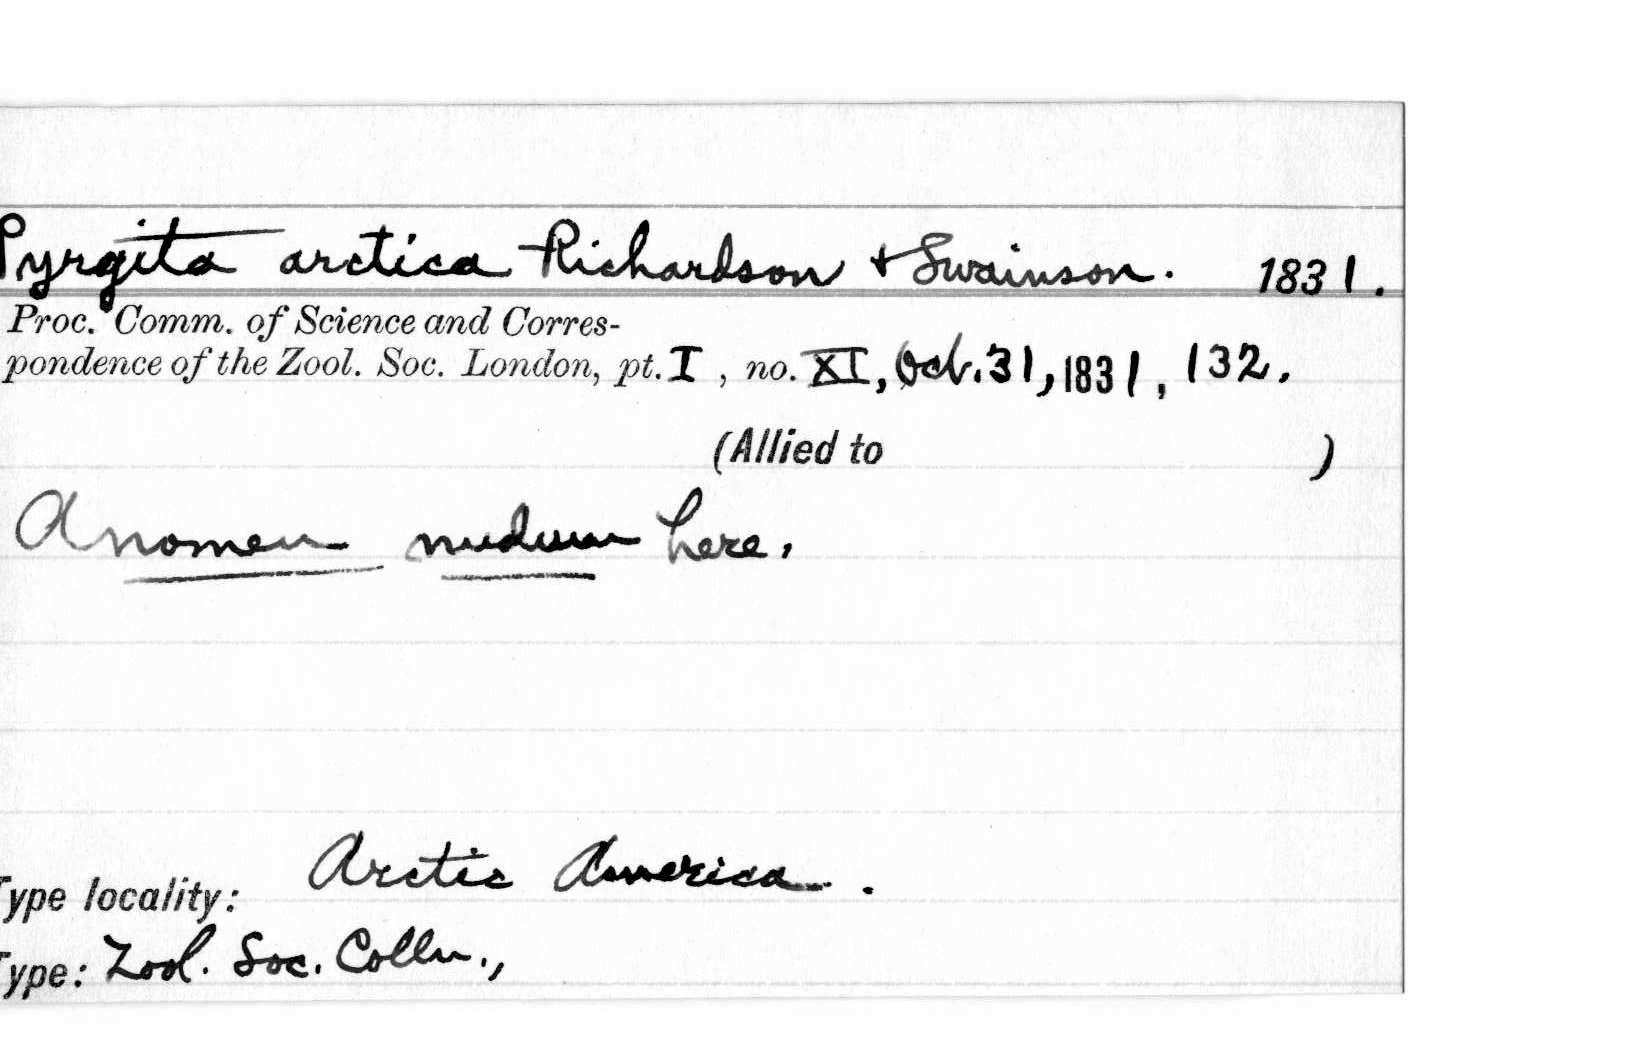 Pyrgita arctica Richardson & Swainson. 1831.
Proc. Comm. of Science and Corres-
pondence of the Zool. Soc. London, pt. I, no. XI, Oct. 31, 1831, 132.
(Allied to )
A nomen nudum here.
Type locality: Arctic America.
Type: Zool. Soc. Colln.,